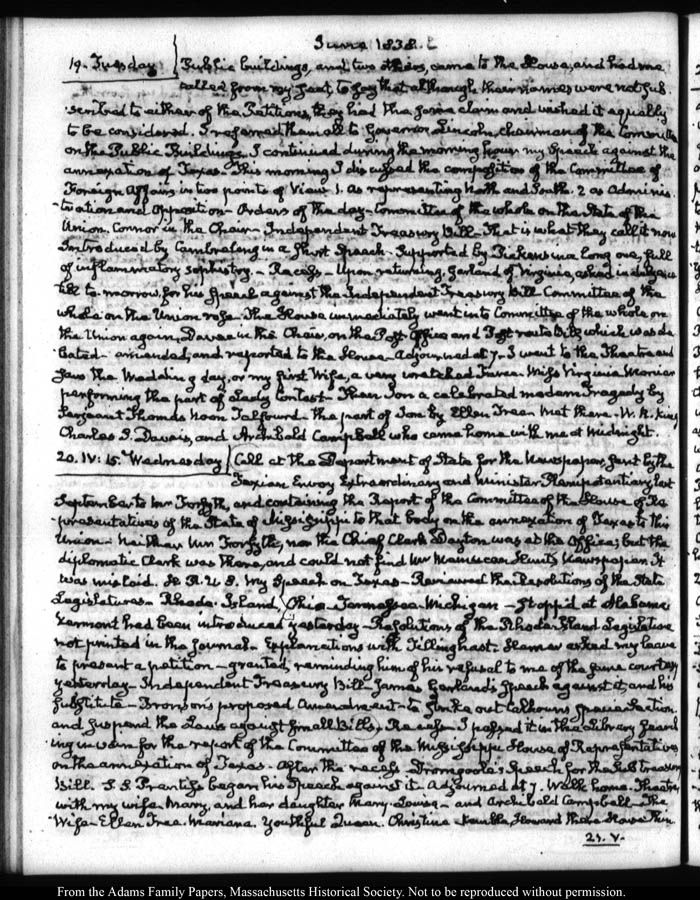 June 1838.
19. Tuesday. Public buildings, and two others, came to the House, and had me
called from my seat, to say that although their names were not sub-
scribed to either of the Petitions, they had the same claim and wished it equally
to be considered. I referred them all to Governor Lincoln, chairman of the Committee
on the Public Buildings. I continued during the morning hour my Speech against the
annexation of Texas. This morning I discussed the composition of the Committee of
Foreign Affairs in two points of View 1. as representing North and South. 2 as Adminis-
tration and Opposition - Orders of the day - Committee of the whole on the State of the
Union. Connor in the Chair - Independent Treasury Bill - That is what they call it now
Introduced by Cambreleng in a short Speech - Supported by Pickens in a long one, full
of inflammatory sophistry. - Recess - Upon returning, Garland of Virginia, asked indulgence
till to-morrow, for his Speech against the Independent Treasury Bill Committee of the
whole on the Union rose. The House immediately went into Committee of the whole on
the Union again, Davee in the Chair, on the Post Office and Post route Bill, which was de-
bated - amended, and reported to the House - Adjourned at 7 - I went to the Theatre and
saw the Wedding day, or my first Wife, a very wretched Farce. Miss Virginia Monier
performing the part of Lady Contest - Then Ion a celebrated modern Tragedy by
Sergeant Thomas Noon Talfourd - the part of Ion by Ellen Tree. Met there. W. R. King
Charles S. Daveis, and Archibald Campbell who came home with me at Midnight.
20. IV: 15. Wednesday Call at the Department of State for the Newspaper sent by the
Texian Envoy Extraordinary and Minister Plenipotentiary, last
September to Mr Forsyth, and containing the Report of the Committee of the House of Re-
presentatives of the State of Mississippi to that body on the annexation of Texas to this
Union - Neither Mr Forsyth, nor the Chief Clerk Dayton was at the Office; but the
diplomatic Clerk was there, and could not find Mr Memucan Hunt's Newspaper. It
was mislaid. H. R. U. S. My Speech on Texas - Reviewed the Resolutions of the State
Legislatures - Rhode-Island, Ohio - Tennessee - Michigan - Stopp'd at Alabama
Vermont had been introduced yesterday - Resolutions of the Rhode-Island Legislature
not printed in the Journal - Explanations with Tillinghast. Hamer asked my leave
to present a petition - granted, reminding him of his refusal to me of the same courtesy
yesterday - Independent Treasury Bill - James Garland's Speech against it, and his
substitute - Bronson's proposed Amendment - to strike out Calhoun's specie Section
and suspend the Laws against small Bills. Recess. I passed it in the Library search-
ing in vain for the report of the Committee of the Mississippi House of Representatives
on the annexation of Texas - After the recess - Dromgoole's Speech for the Sub treasury
Bill. S. S. Prentiss began his Speech against it - Adjourned at 7. Walk home. Theatre,
with my wife, Mary, and her daughter Mary-Louisa - and Archibald Campbell - The
Wife - Ellen Tree. Mariana. Youthful Queen. Christina
21. V.
From the Adams Family Papers, Massachusetts Historical Society. Not to be reproduced without permission.